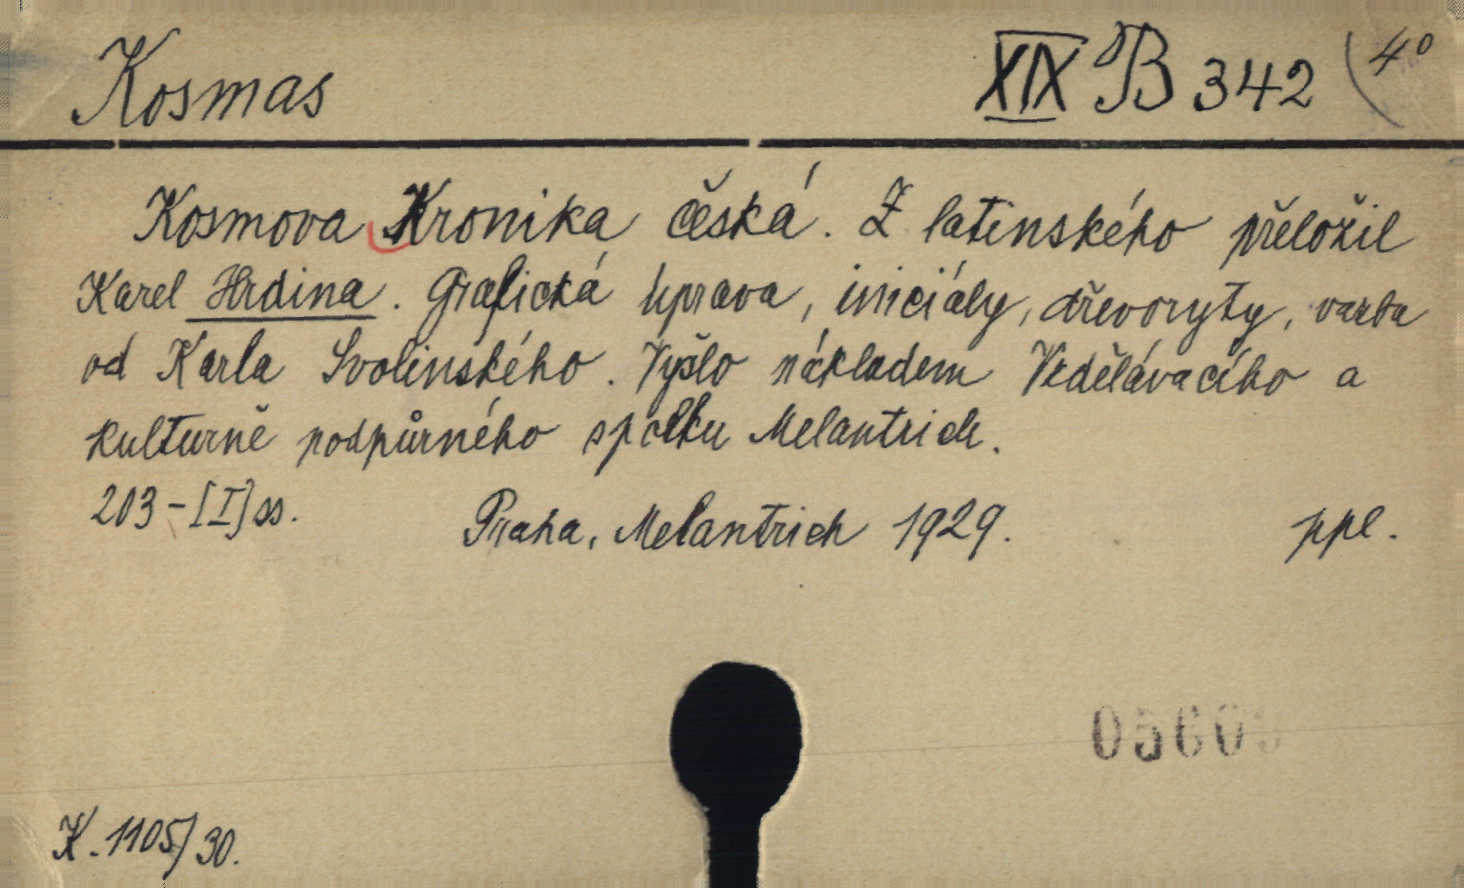 Kosmas XIX B 342 (4°
Kosmova Kronika česká. Z latinského přeložil
Karel Hrdina. Grafická úprava, iniciály, dřevoryty, vazba
od Karla Svolinského. Vyšlo nákladem Vzdělávacího a
kulturně podpůrného spolku Melantrich.
203-[I] ss. Praha, Melantrich 1929. ppl.
0560
K. 1105/30.